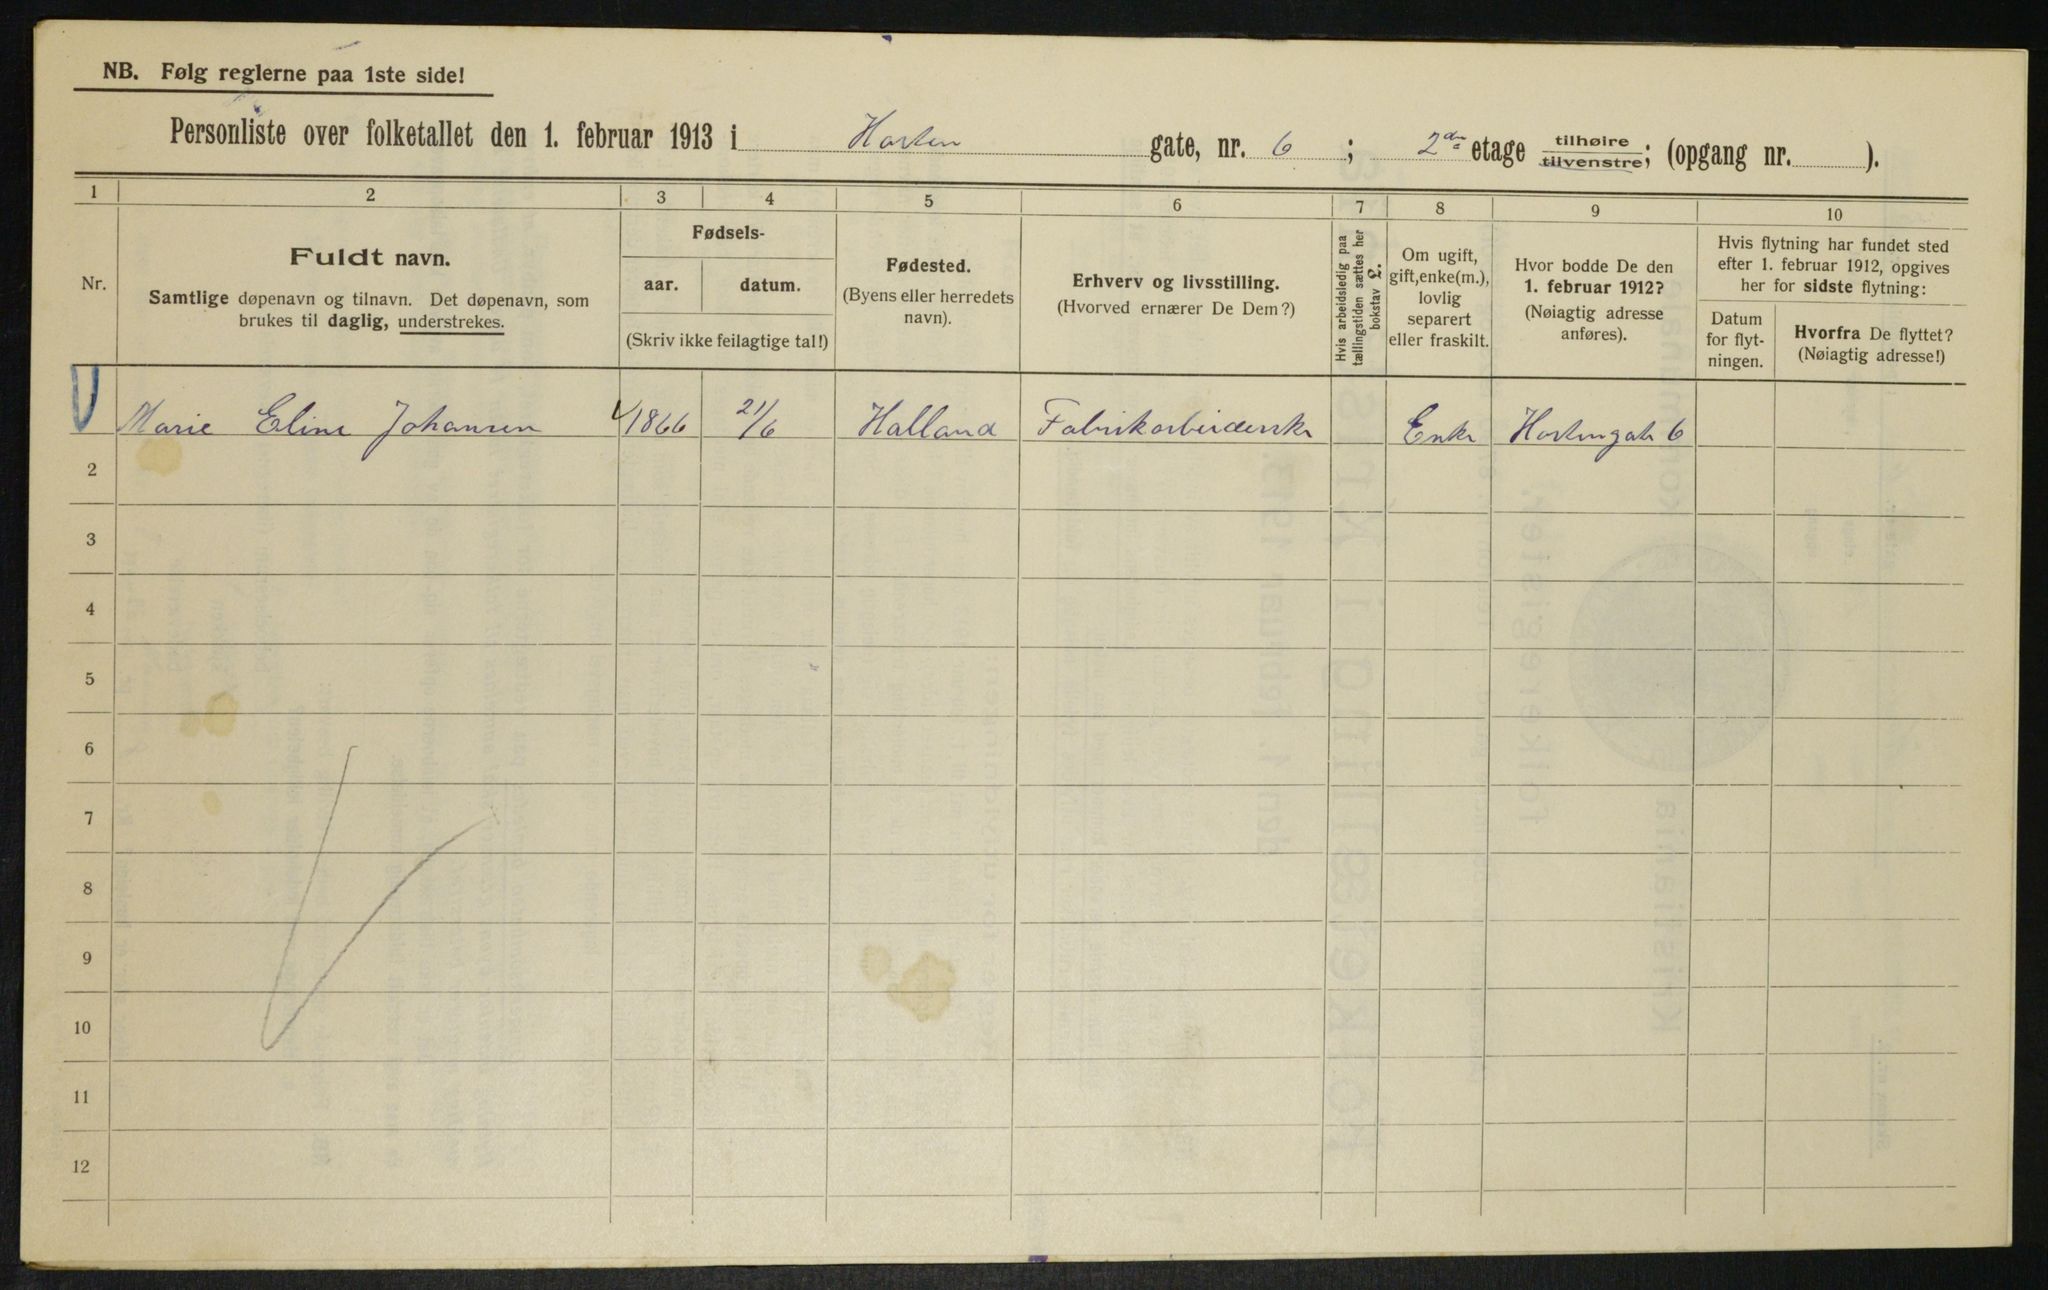 NB. Følg reglerne paa 1ste side!
Personliste over folketallet den 1. februar 1913 i Horten gate, nr. 6; 2den etage tilhøire tilvenstre; (opgang nr. ).
1 2 3 4 5 6 7 8 9 10
Nr.
Fuldt navn.
Samtlige døpenavn og tilnavn. Det døpenavn, som
brukes til daglig, understrekes.
Fødsels-
aar. datum.
(Skriv ikke feilagtige tal!)
Fødested.
(Byens eller herredets
navn).
Erhverv og livsstilling.
(Hvorved ernærer De Dem?)
Hvis arbeidsledig paa
tællingstiden sættes her
bokstav L.
Om ugift,
gift, enke(m.),
lovlig
separert
eller fraskilt.
Hvor bodde De den
1. februar 1912?
(Nøiagtig adresse
anføres).
Hvis flytning har fundet sted
efter 1. februar 1912, opgives
her for sidste flytning:
Datum
for flyt-
ningen.
Hvorfra De flyttet?
(Nøiagtig adresse!)
Marie Eline Johansen 1866 21/6 Halland Fabrikarbeiderske Enke Hortengate 6
2
3
4
5
6
7
8
9
10
11
12